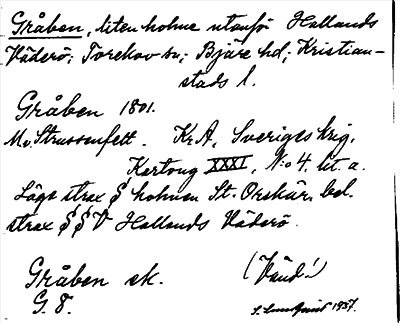 Gråben, liten holme utanför Hallands
Väderö; Torekov sn; Bjäre hd; Kristian-
stads l.
Gråben 1801.
M. v. Strussenfelt. Kr. A. Sveriges krig,
Kartong XXXI, N:o 4, lit. a.
Lågt strax § holmen St. Orskär, bel.
strax § § V Hallands Väderö.
Gråben sk.
(Vänd!)
G. 8.
S. Lundquist 1937.